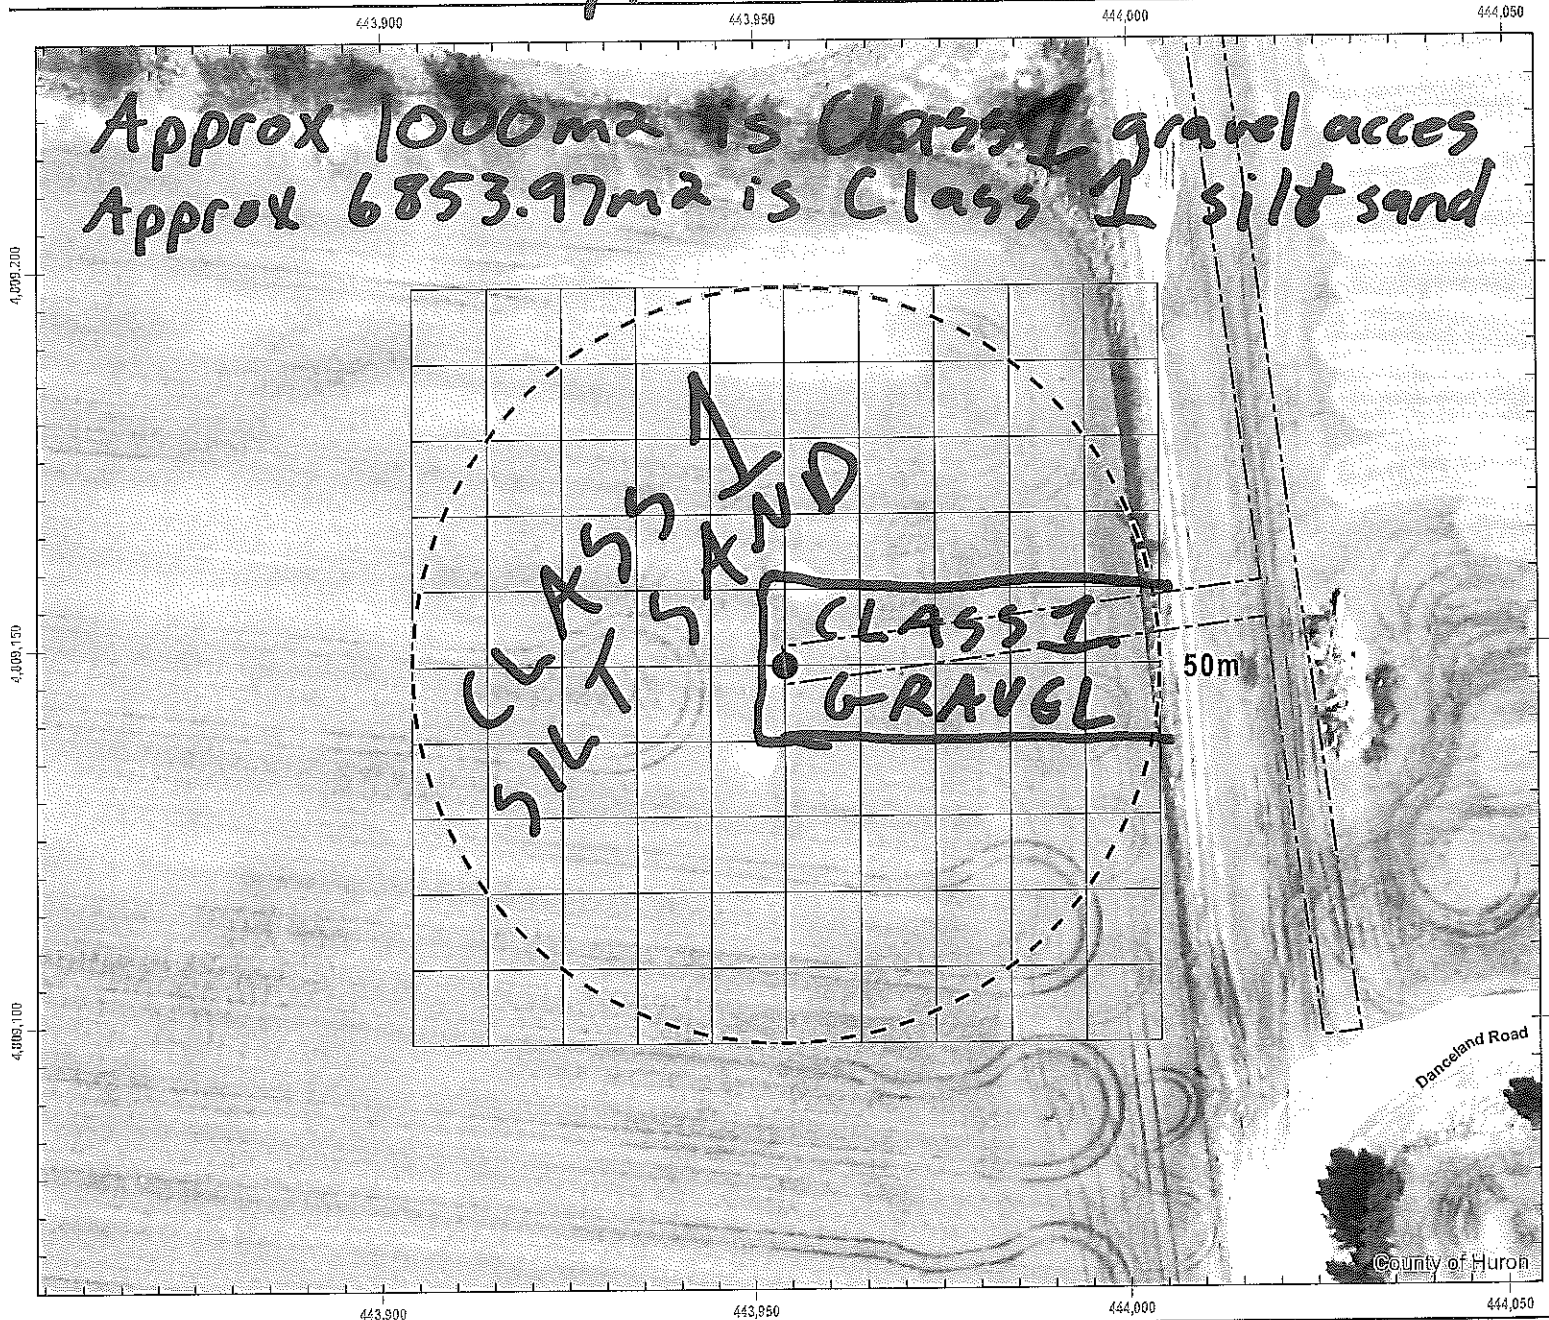 443,900 443,950 444,000 444,050
Approx 1000m2 is Class 1 gravel acces
Approx 6853.97m2 is Class 1 silt sand
4,809,200
CLASS 1
SILT SAND
CLASS 1
GRAVEL
4,809,150
50m
4,809,100
Danceland Road
County of Huron
443,900 443,950 444,000 444,050